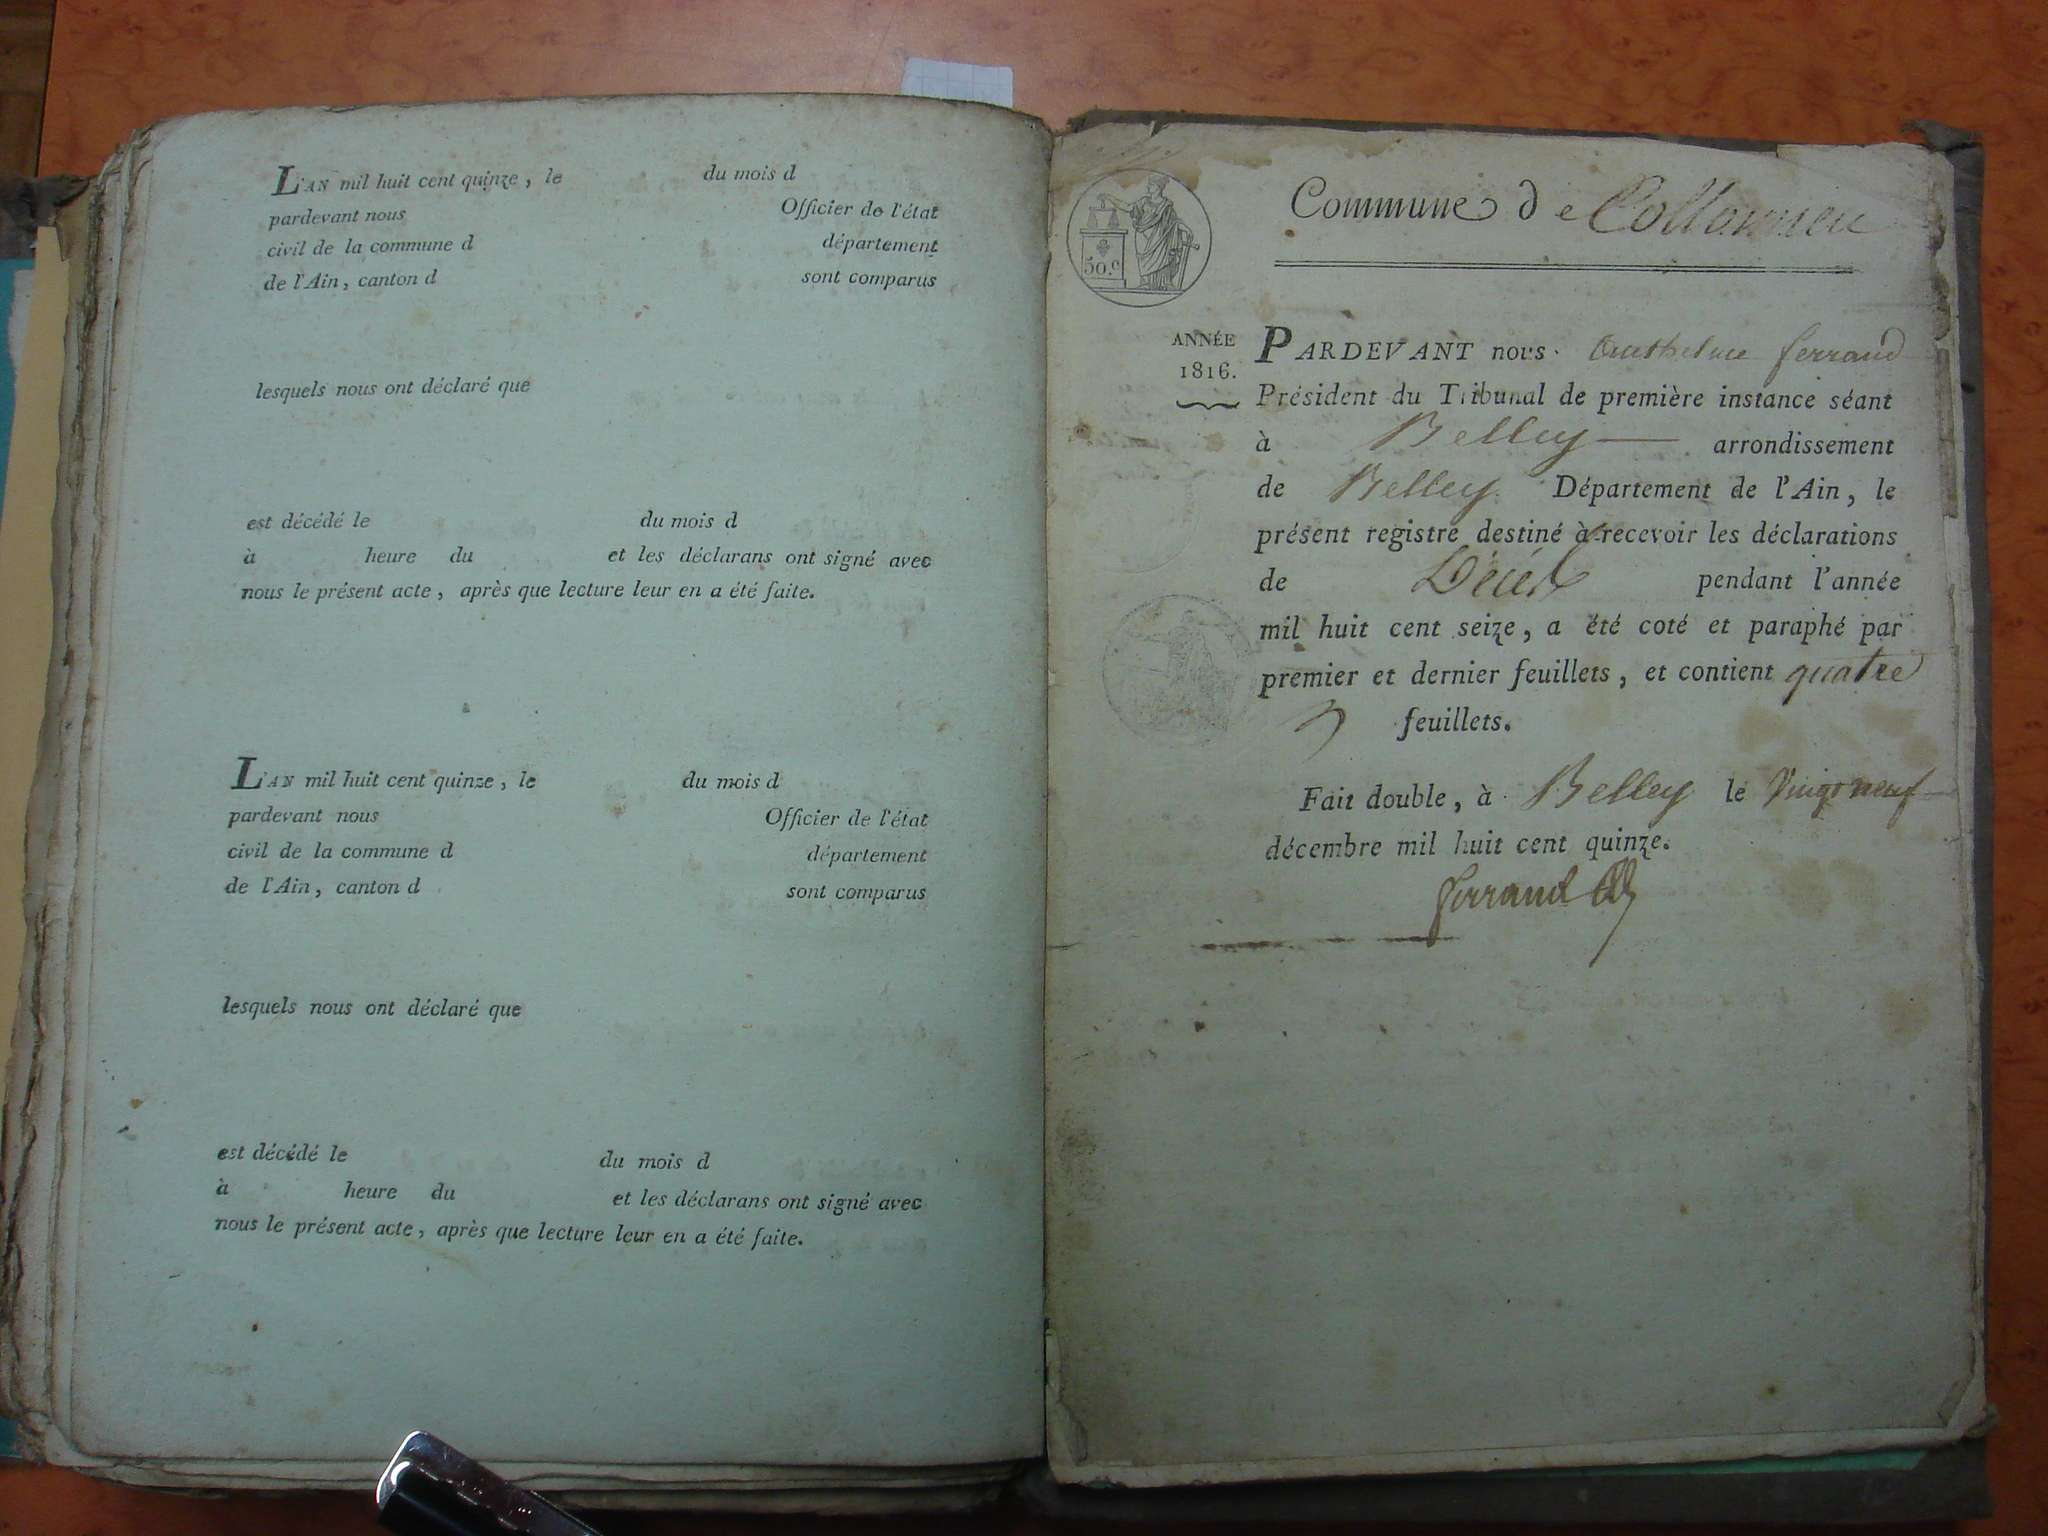 L'AN mil huit cent quinze, le du mois d
pardevant nous Officier de l'état
civil de la commune d département
de l'Ain, canton d sont comparus
lesquels nous ont déclaré que
est décédé le du mois d
à heure du et les déclarans ont signé avec
nous le présent acte, après que lecture leur en a été faite.
L'AN mil huit cent quinze, le du mois d
pardevant nous Officier de l'état
civil de la commune d département
de l'Ain, canton d sont comparus
lesquels nous ont déclaré que
est décédé le du mois d
à heure du et les déclarans ont signé avec
nous le présent acte, après que lecture leur en a été faite.
50.c
Commune de Collomieu
ANNÉE
1816.
PARDEVANT nous Anthelme ferrand
Président du Tribunal de première instance séant
à Belley arrondissement
de Belley Département de l'Ain, le
présent registre destiné à recevoir les déclarations
de Décès pendant l'année
mil huit cent seize, a été coté et paraphé par
premier et dernier feuillets, et contient quatre
feuillets.
Fait double, à Belley le Vingt neuf
décembre mil huit cent quinze.
ferrand